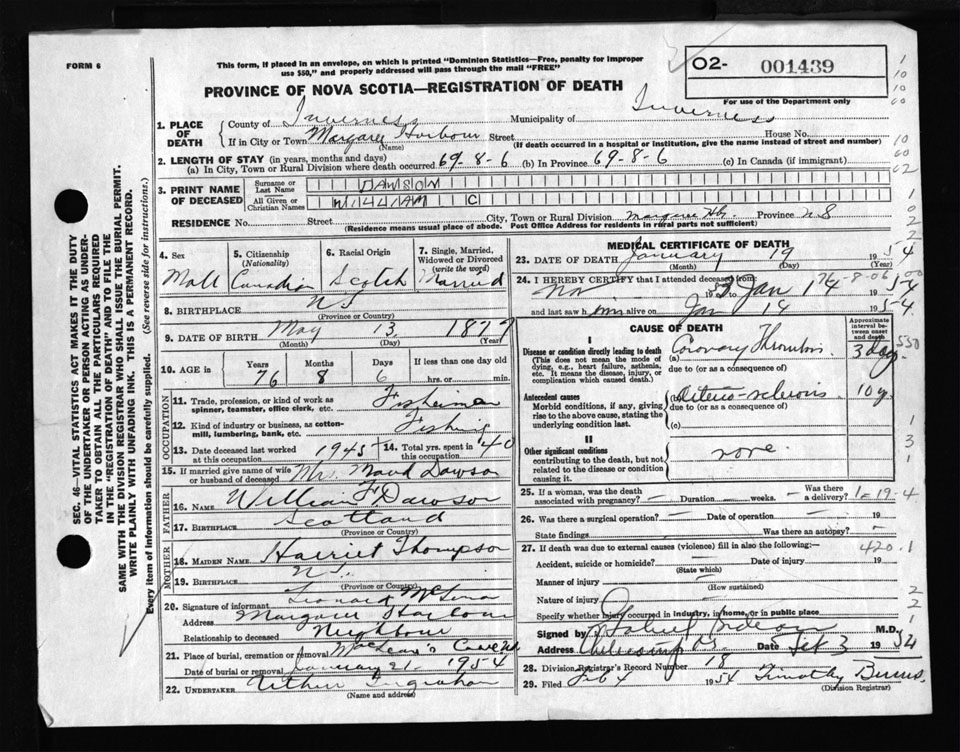 FORM 6
This form, if placed in an envelope, on which is printed "Dominion Statistics—Free, penalty for improper
use $50," and properly addressed will pass through the mail "FREE"
O2- 001439
For use of the Department only
PROVINCE OF NOVA SCOTIA—REGISTRATION OF DEATH
1. PLACE OF DEATH
County of Inverness Municipality of Inverness
If in City or Town Margaree Harbour Street House No.
(Name) (If death occurred in a hospital or institution, give the name instead of street and number)
2. LENGTH OF STAY (in years, months and days)
(a) In City, Town or Rural Division where death occurred 69-8-6 (b) In Province 69-8-6 (c) In Canada (if immigrant)
3. PRINT NAME OF DECEASED
Surname or Last Name DAWSON
All Given or Christian Names WILLIAM C
RESIDENCE No. Street City, Town or Rural Division Margaree Hbr. Province N S
(Residence means usual place of abode. Post Office Address for residents in rural parts not sufficient)
4. Sex
Male
5. Citizenship
(Nationality)
Canadian
6. Racial Origin
Scotch
7. Single, Married, Widowed or Divorced
(write the word)
Married
8. BIRTHPLACE N S
(Province or Country)
9. DATE OF BIRTH May 13 187
(Month) (Day) (Year)
10. AGE in
Years Months Days If less than one day old
76 8 6 hrs. or min.
OCCUPATION
11. Trade, profession, or kind of work as
spinner, teamster, office clerk, etc. Fisherman
12. Kind of industry or business, as cotton-
mill, lumbering, bank, etc. Fishing
13. Date deceased last worked at this occupation 1945 14. Total yrs. spent in this occupation 40
15. If married give name of wife or husband of deceased Mrs. Maud Dawson
FATHER
16. NAME William F Dawson
17. BIRTHPLACE Scotland
(Province or Country)
MOTHER
18. MAIDEN NAME Harriet Thompson
19. BIRTHPLACE N S.
(Province or Country)
20. Signature of informant Leonard
Address Margaree Harbour
Relationship to deceased Neighbour
21. Place of burial, cremation or removal
Date of burial or removal January 21 1954
22. UNDERTAKER Arthur Ingraham
(Name and address)
MEDICAL CERTIFICATE OF DEATH
23. DATE OF DEATH January 19 1954
(Month) (Day) (Year)
24. I HEREBY CERTIFY that I attended deceased from:
Nov 195 Jan 1
and last saw him alive on Jan 14 1954
CAUSE OF DEATH
Approximate interval between onset and death
I
Disease or condition directly leading to death
(This does not mean the mode of
dying, e.g., heart failure, asthenia,
etc. It means the disease, injury, or
complication which caused death.)
(a) Coronary Thrombosis 3 days
due to (or as a consequence of)
Antecedent causes
Morbid conditions, if any, giving
rise to the above cause, stating the
underlying condition last.
(b) Arterio-sclerosis 10 y.
due to (or as a consequence of)
(c)
II
Other significant conditions
contributing to the death, but not
related to the disease or condition
causing it.
none
25. If a woman, was the death associated with pregnancy? — Duration — weeks. — Was there a delivery?
1-19-4
26. Was there a surgical operation? — Date of operation — 19
State findings Was there an autopsy? —
27. If death was due to external causes (violence) fill in also the following:—
420.1
Accident, suicide or homicide? Date of injury 19
(State which)
Manner of injury
(How sustained)
Nature of injury
Specify whether injury occurred in industry, in home, or in public place
Signed by M.D.
Address N.S. Date Feb 3 1954
28. Division Registrar's Record Number 18
29. Filed Feb 4 1954 Timothy
(Division Registrar)
SEC. 46—VITAL STATISTICS ACT MAKES IT THE DUTY
OF THE UNDERTAKER OR PERSON ACTING AS UNDER-
TAKER TO OBTAIN ALL THE PARTICULARS REQUIRED
IN THE "REGISTRATION OF DEATH" AND TO FILE THE
SAME WITH THE DIVISION REGISTRAR WHO SHALL ISSUE THE BURIAL PERMIT.
WRITE PLAINLY WITH UNFADING INK. THIS IS A PERMANENT RECORD.
Every item of information should be carefully supplied. (See reverse side for instructions.)